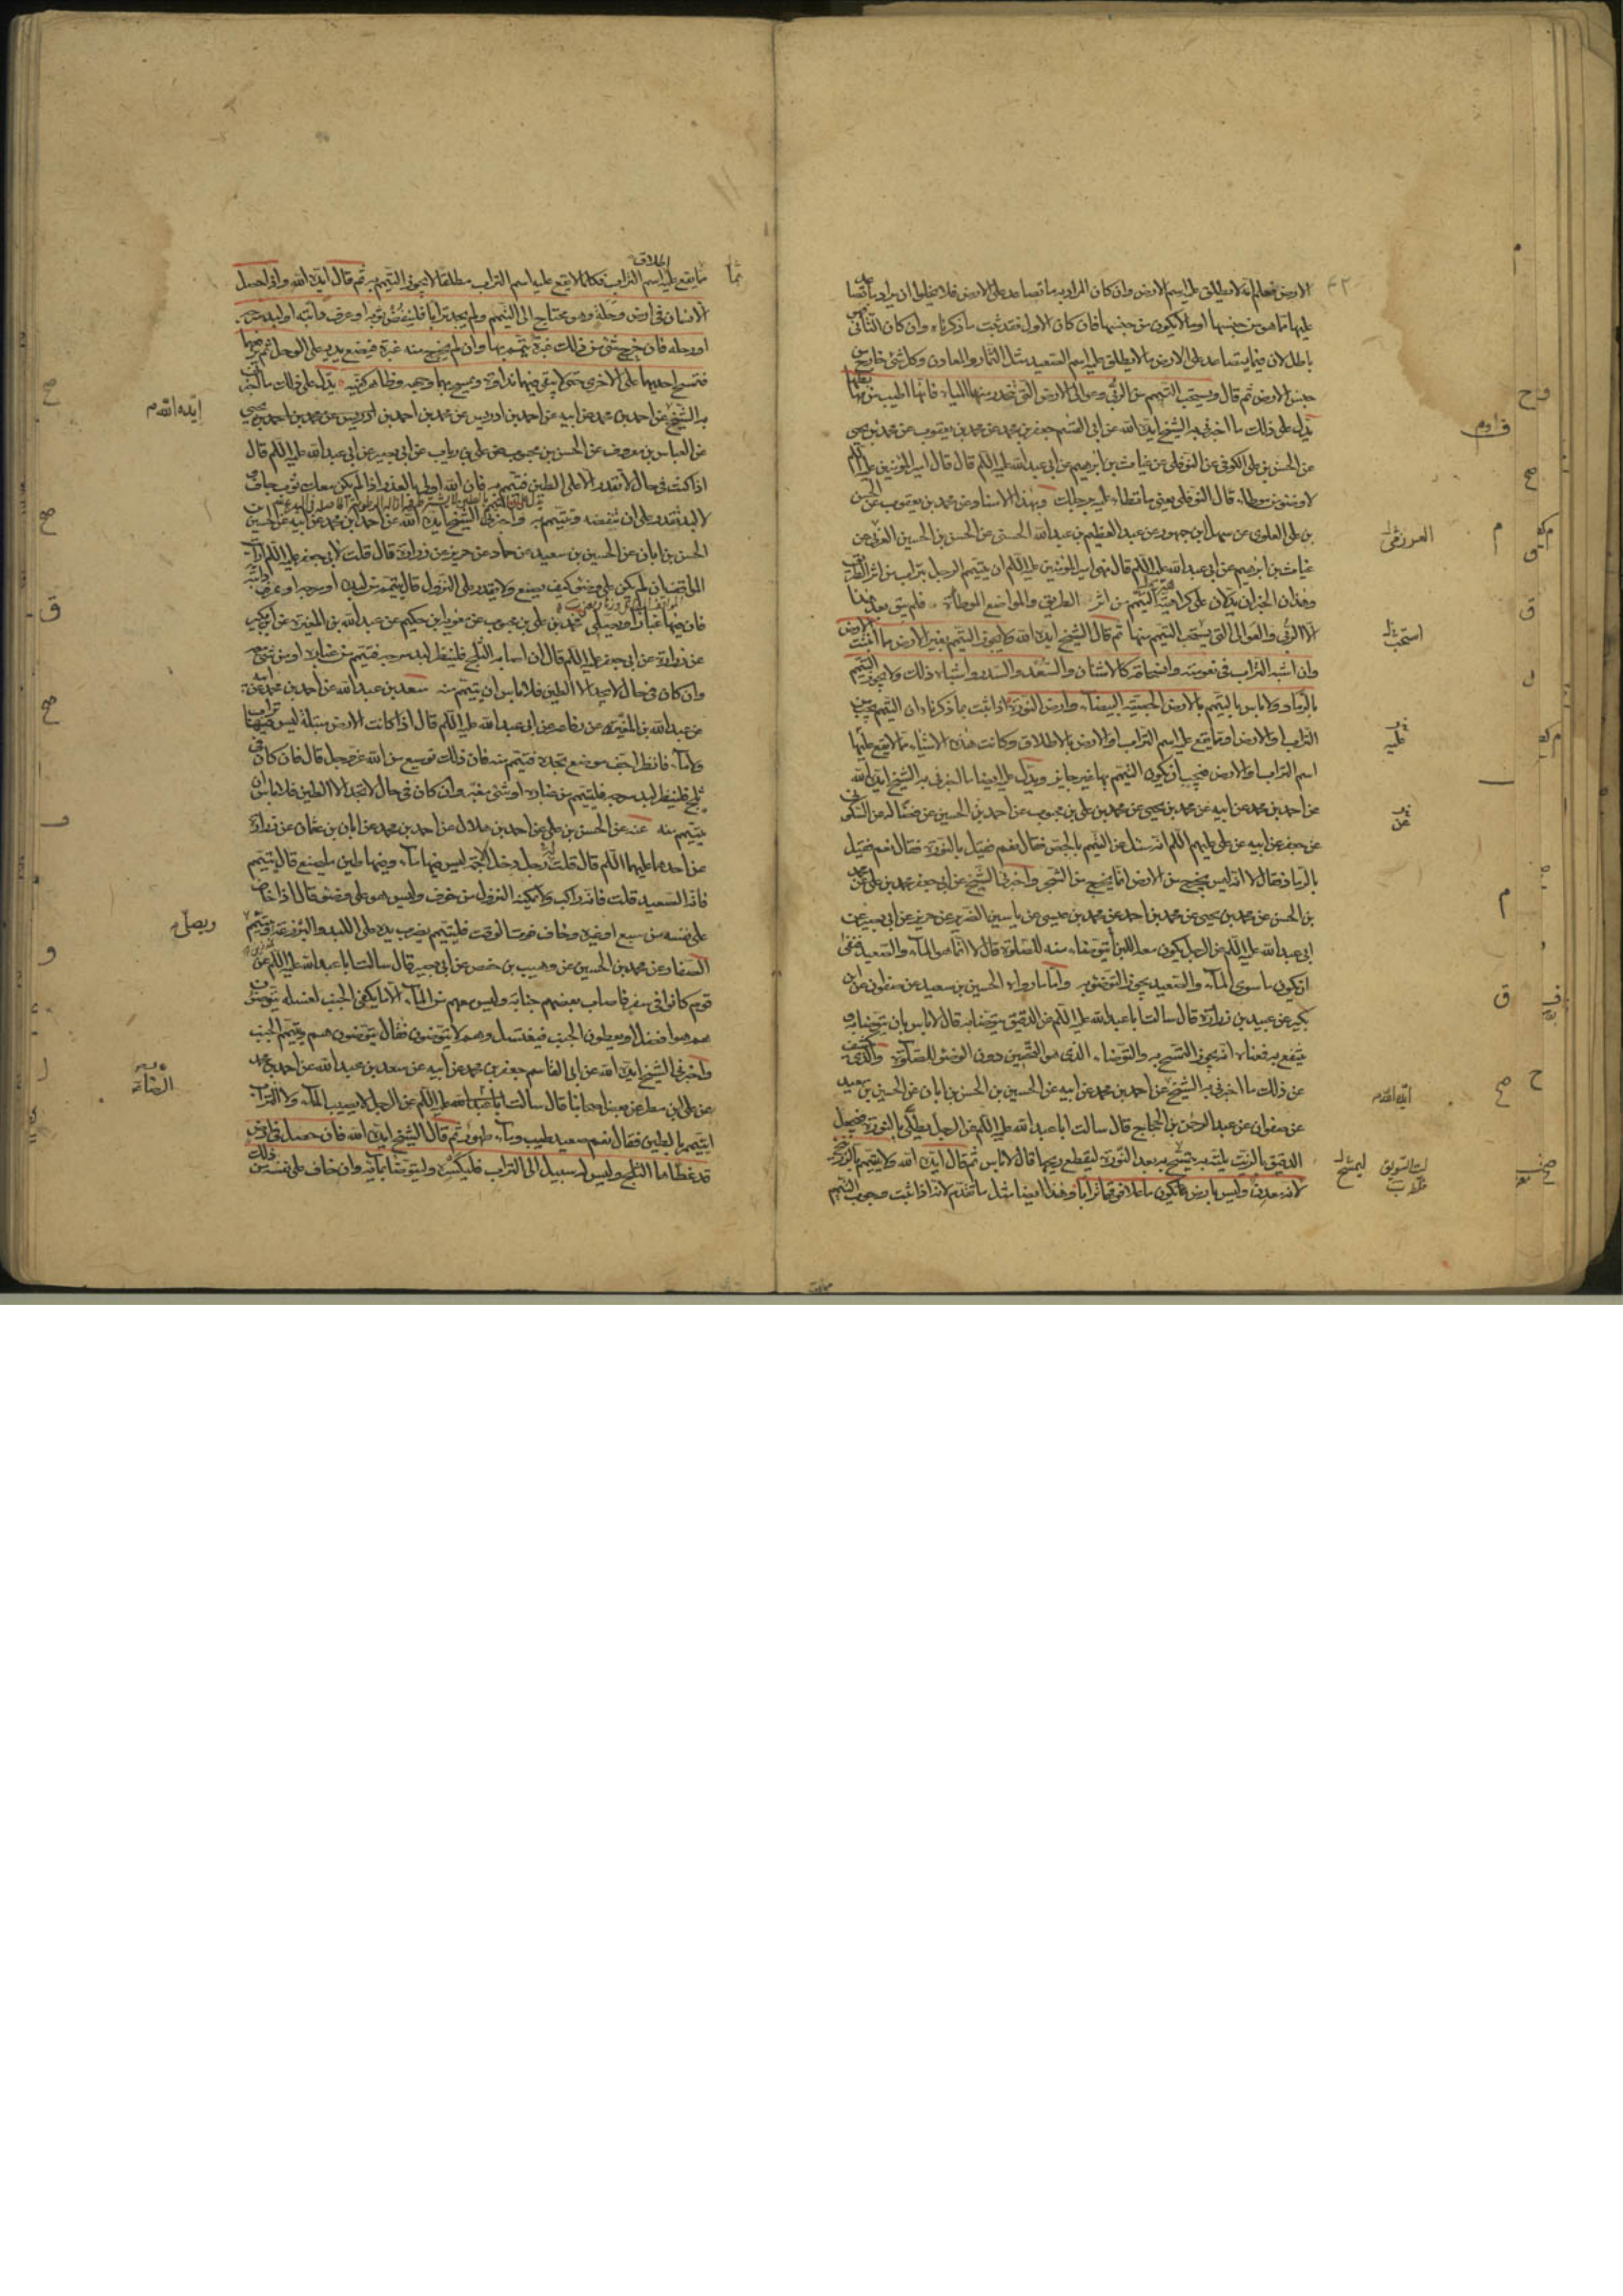 الارض فمعلوم انه لا يطلق عليه اسم الارض وان كان المراد به ما تصاعد على الارض فلا يخلو ان يراد به ما تصاعد
عليها مما هو من جنسها او ما لا يكون من جنسها فان كان الاول فقد ثبت ما ذكرناه وان كان الثاني فهو
باطل لان فيما يتصاعد على الارض ما لا يطلق عليه اسم الصعيد مثل الثمار والمعادن وكل شئ خارج من
جنس الارض ثم قال ويستحب التيمم من الربى وعوالى الارض التى تنحدر منها المياه فانها اطيب من مهابطها
يدل على ذلك ما اخبرنى به الشيخ ايده الله عن ابى القسم جعفر بن محمد عن محمد بن يعقوب عن محمد بن يحيى
عن الحسن بن على الكوفى عن النوفلى عن غياث بن ابرهيم عن ابى عبد الله عليه السلم قال قال امير المؤمنين عليه السلم
لا وضوء من موطاء قال النوفلى يعنى ما تطاء عليه برجلك وبهذا الاسناد عن محمد بن يعقوب عن الحسن
بن على العلوى عن سهل بن جمهور عن عبد العظيم بن عبد الله الحسنى عن الحسن بن الحسين العرنى عن
غياث بن ابرهيم عن ابى عبد الله عليه السلم قال نهى امير المؤمنين عليه السلم ان يتيمم الرجل بتراب من اثر الطريق
وهذان الخبران يدلان على كراهية التيمم من اثر الطريق والمواضع الموطأة فلم يبق بعد هذا
الا الربى والعوالى التى يستحب التيمم منها ثم قال الشيخ ايده الله ولا يجوز التيمم بغير الارض مما انبتت الارض
وان اشبه التراب فى نعومته وانسحاقه كالاشنان والسعد والسدر واشباه ذلك ولا يجوز التيمم
بالرماد ولا باس بالتيمم بالارض الجصية البيضاء وارض النورة اذا ثبت بما ذكرناه ان التيمم يجب من
التراب او الارض او مما يقع عليه اسم التراب او الارض بالاطلاق وكانت هذه الاشياء مما لا يقع عليها
اسم التراب او الارض فيجب ان يكون التيمم بها غير جايز ويدل عليه ايضا ما اخبرنى به الشيخ ايده الله
عن احمد بن محمد عن ابيه عن محمد بن يحيى عن محمد بن على بن محبوب عن احمد بن الحسين عن فضالة عن السكونى
عن جعفر عن ابيه عن على عليهم السلم انه سئل عن التيمم بالجص فقال نعم فقيل بالنورة فقال نعم فقيل
بالرماد فقال لا انه ليس يخرج من الارض انما يخرج من الشجر واخبرنى الشيخ عن ابى جعفر محمد بن على عن محمد
بن الحسن عن محمد بن يحيى عن محمد بن احمد عن محمد بن عيسى عن ياسين الضرير عن حريز عن ابى بصير عن
ابى عبد الله عليه السلم عن الرجل يكون معه اللبن أيتوضاء منه للصلوة قال لا انما هو الماء والصعيد فنفى
ان يكون ما سوى الماء والصعيد يجوز التوضؤ به واما ما رواه الحسين بن سعيد عن صفوان عن ابن
بكير عن عبيد بن زرارة قال سالت ابا عبد الله عليه السلم عن الدقيق يتوضا به قال لا باس بان يتوضا به و
ينتفع به فمعناه انه يجوز التمسح به والتوضاء الذى هو التحسين دون الوضوء للصلوة والذى يكشف
عن ذلك ما اخبرنى به الشيخ عن احمد بن محمد عن ابيه عن الحسين بن الحسن بن ابان عن الحسين بن سعيد
عن صفوان عن عبد الرحمن بن الحجاج قال سالت ابا عبد الله عليه السلم عن الرجل يطلى بالنورة فيجعل
الدقيق بالزيت يلته به يتمسح به بعد النورة ليقطع ريحها قال لا باس ثم قال ايده الله ولا يتيمم بالزرنيخ
لانه معدن وليس بارض فما يكون ما علا فوقها ترابا وهذا ايضا مثل ما تقدم لانه اذا ثبت وجوب التيمم
العرزمى
استحب
ايده الله
مما يقع عليه اسم التراب فكلما لا يقع عليه اسم التراب مطلقا لا يجوز التيمم به ثم قال ايده الله واذا حصل
الانسان فى ارض وحلة وهو محتاج الى التيمم ولم يجد ترابا فلينفض ثوبه او عرف دابته او لبد سرجه
او رحله فان خرج شئ من ذلك غبرة تيمم بها وان لم يخرج منه غبرة فيضع يديه على الوحل ثم يرفعهما
فتمسح احديهما على الاخرى حتى لا يبقى فيهما نداوة ويمسح بهما وجهه وظاهر كفيه يدل على ذلك ما اخبرنى
به الشيخ عن احمد بن محمد عن ابيه عن احمد بن ادريس عن محمد بن احمد بن يحيى
عن العباس بن معروف عن الحسن بن محبوب عن على بن رياب عن ابى بصير عن ابى عبد الله عليه السلم قال
اذا كنت فى حال لا تقدر الا على الطين فتيمم به فان الله اولى بالعذر اذا لم يكن معك ثوب جاف
او لبد تقدر على ان تنفضه وتتيمم به واخبرنى الشيخ ايده الله عن احمد بن محمد عن ابيه عن الحسين
بن الحسن بن ابان عن الحسين بن سعيد عن حماد عن حريز عن زرارة قال قلت لابى جعفر عليه السلم ارايت
المواقف ان لم يكن على وضوء كيف يصنع ولا يقدر على النزول قال يتيمم من لبده او سرجه او عرف دابته
فان فيها غبارا ويصلى محمد بن على بن محبوب عن معوية بن حكيم عن عبد الله بن المغيرة عن ابن بكير
عن زرارة عن ابى جعفر عليه السلم قال ان اصابه الثلج فلينظر لبد سرجه فيتيمم من غباره او من شئ معه
وان كان فى حال لا يجد الا الطين فلا باس ان يتيمم منه سعد بن عبد الله عن احمد بن محمد عن ابيه
عن عبد الله بن المغيرة عن رفاعة عن ابى عبد الله عليه السلم قال اذا كانت الارض مبتلة ليس فيها تراب
ولا ماء فانظر اجف موضع تجده فتيمم منه فان ذلك توسيع من الله عز وجل قال فان كان فى
ثلج فلينظر لبد سرجه فليتيمم من غباره او شئ مغبر وان كان فى حال لا يجد الا الطين فلا باس ان
يتيمم منه عنه عن الحسن بن على عن احمد بن هلال عن احمد بن محمد عن ابان بن عثمان عن زرارة
عن احدهما عليهما السلم قال قلت رجل دخل الاجمة ليس فيها ماء وفيها طين ما يصنع قال يتيمم
فانه الصعيد قلت فانه راكب ولا يمكنه النزول من خوف وليس هو على وضوء قال اذا خاف
على نفسه من سبع او غيره وخاف فوت الوقت فليتيمم يضرب بيده على اللبد والبرذعة ويتيمم
الصفار عن محمد بن الحسين عن وهيب بن حفص عن ابى بصير قال سالت ابا عبد الله عليه السلم عن
قوم كانوا فى سفر فاصاب بعضهم جنابة وليس معهم من الماء الا ما يكفى الجنب لغسله يتوضؤن
هم هو افضل او يعطون الجنب فيغتسل وهم لا يتوضئون فقال يتوضئون هم ويتيمم الجنب
واخبرنى الشيخ ايده الله عن ابى القاسم جعفر بن محمد عن ابيه عن سعد بن عبد الله عن احمد بن محمد
عن على بن مطر عن بعض اصحابنا قال سالت الرضا عليه السلم عن الرجل لا يصيب الماء ولا التراب
ايتيمم بالطين فقال نعم صعيد طيب وماء طهور ثم قال الشيخ ايده الله فان حصل فى ارض
قد غطاها الثلج وليس له سبيل الى التراب فليكسره وليتوضا بمائه وان خاف على نفسه من ذلك
ايده الله
ويصلى
الرضا